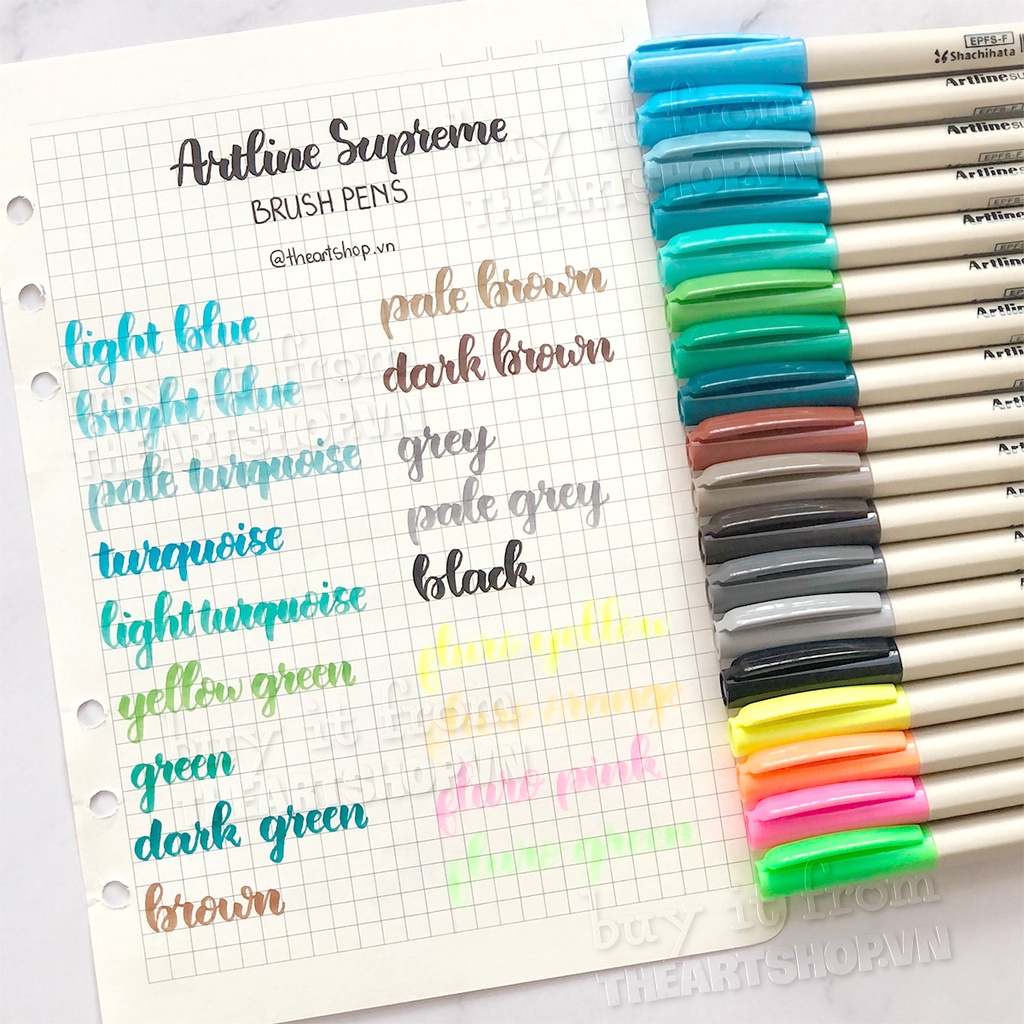 Artline Supreme
BRUSH PENS
@theartshop.vn
light blue
bright blue
pale turquoise
turquoise
light turquoise
yellow green
green
dark green
brown
pale brown
dark brown
grey
pale grey
black
fluro yellow
fluro orange
fluro pink
fluro green
EPFS-F
Shachihata
Artline SU
EPFS-F
Artline SU
EPFS-F
Artline
EPFS
Artline
Artline
Artline
Artlin
Artli
Artl
Art
Art
buy it from
THEARTSHOP.VN
buy it from
THEARTSHOP.VN
buy it from
THEARTSHOP.VN
buy it from
THEARTSHOP.VN